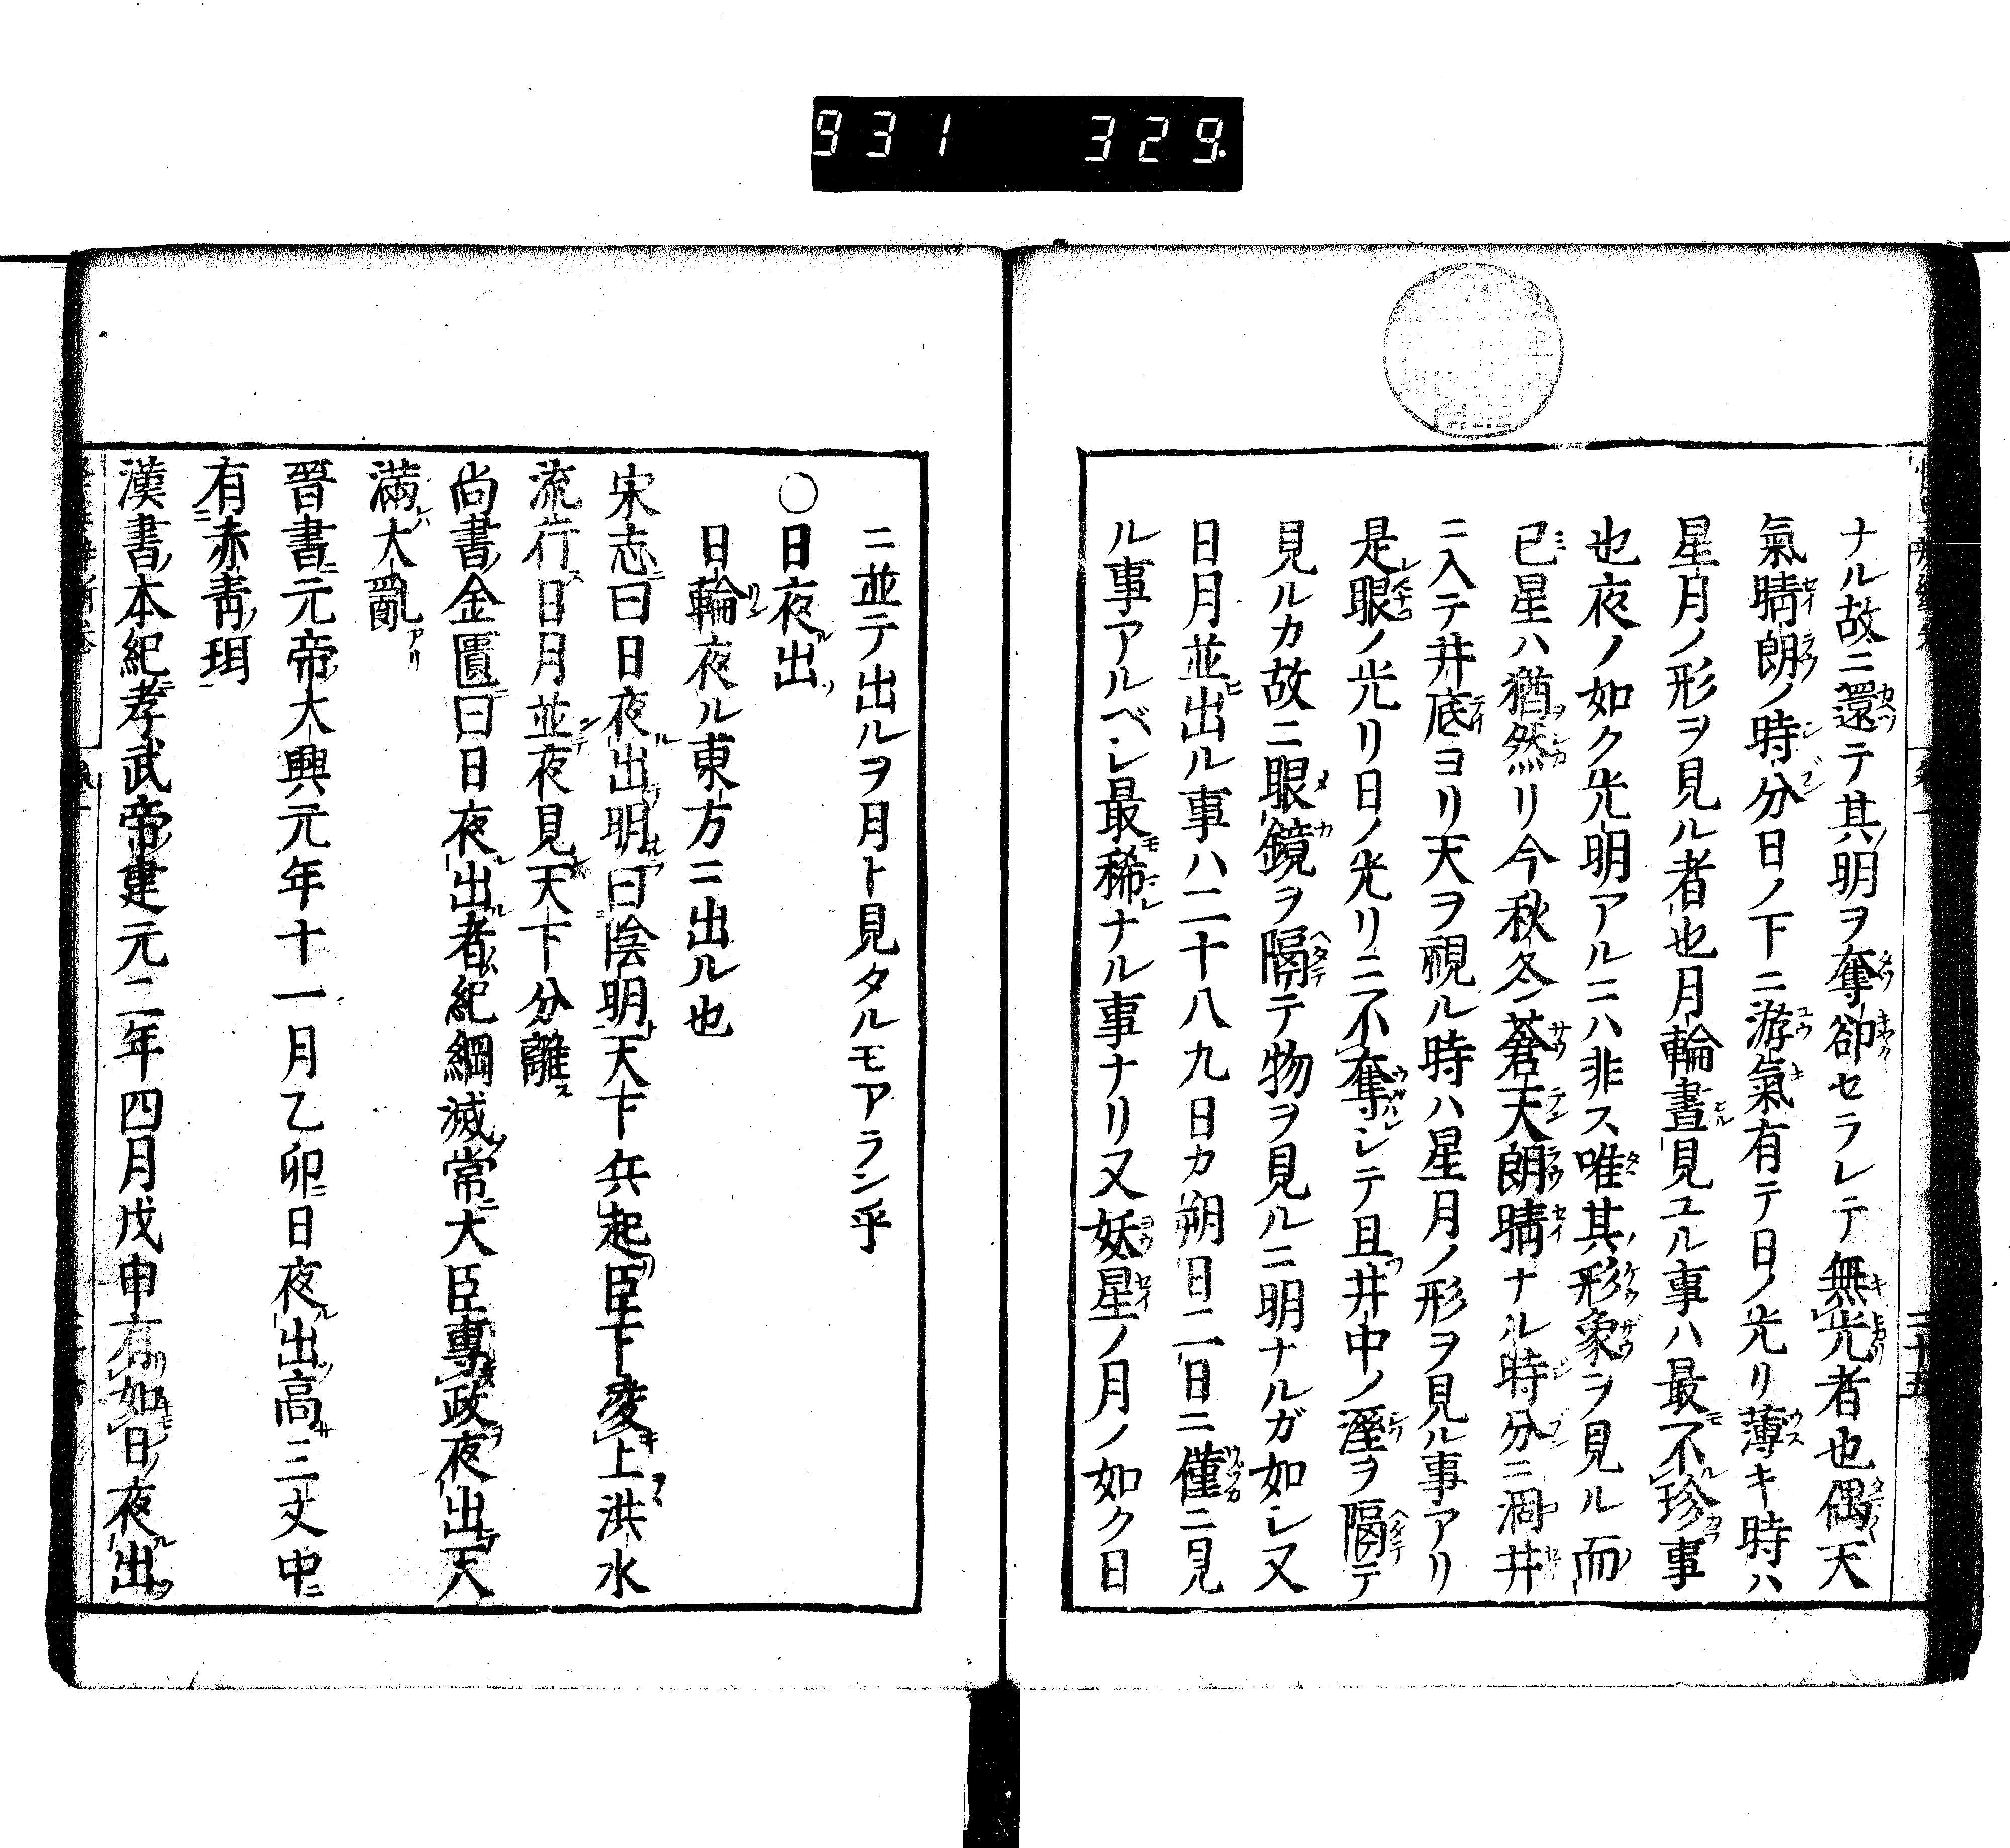 931 329
ナル故ニ還テ其明ヲ奪卻セラレテ無光者也偶天
氣晴朗ノ時分日ノ下ニ游氣有テ日ノ光リ薄キ時ハ
星月ノ形ヲ見ル者也月輪晝見ユル事ハ最不珍事
也夜ノ如ク光明アルニハ非ス唯其形象ヲ見ル而
已星ハ猶然リ今秋冬蒼天朗晴ナル時分ニ涸井
ニ入テ井底ヨリ天ヲ視ル時ハ星月ノ形ヲ見ル事アリ
是眼ノ光リ日ノ光リニ不奪シテ且井中ノ溼ヲ隔テ
見ルカ故ニ眼鏡ヲ隔テ物ヲ見ルニ明ナルガ如シ又
日月並出ル事ハ二十八九日カ朔日二日ニ僅ニ見
ル事アルベシ最稀ナル事ナリ又妖星ノ月ノ如ク日
ニ並テ出ルヲ月ト見タルモアラン乎
〇日夜出
日輪夜ル東方ニ出ル也
宋志曰日夜出明曰陰明天下兵起臣下変上洪水
流行日月並夜見天下分離
尚書金匱曰日夜出者紀綱滅常大臣專政夜出天
滿大亂
晉書元帝大興元年十一月乙卯日夜出高三丈中
有赤靑珥
漢書本紀孝武帝建元二年四月戊申有如日夜出